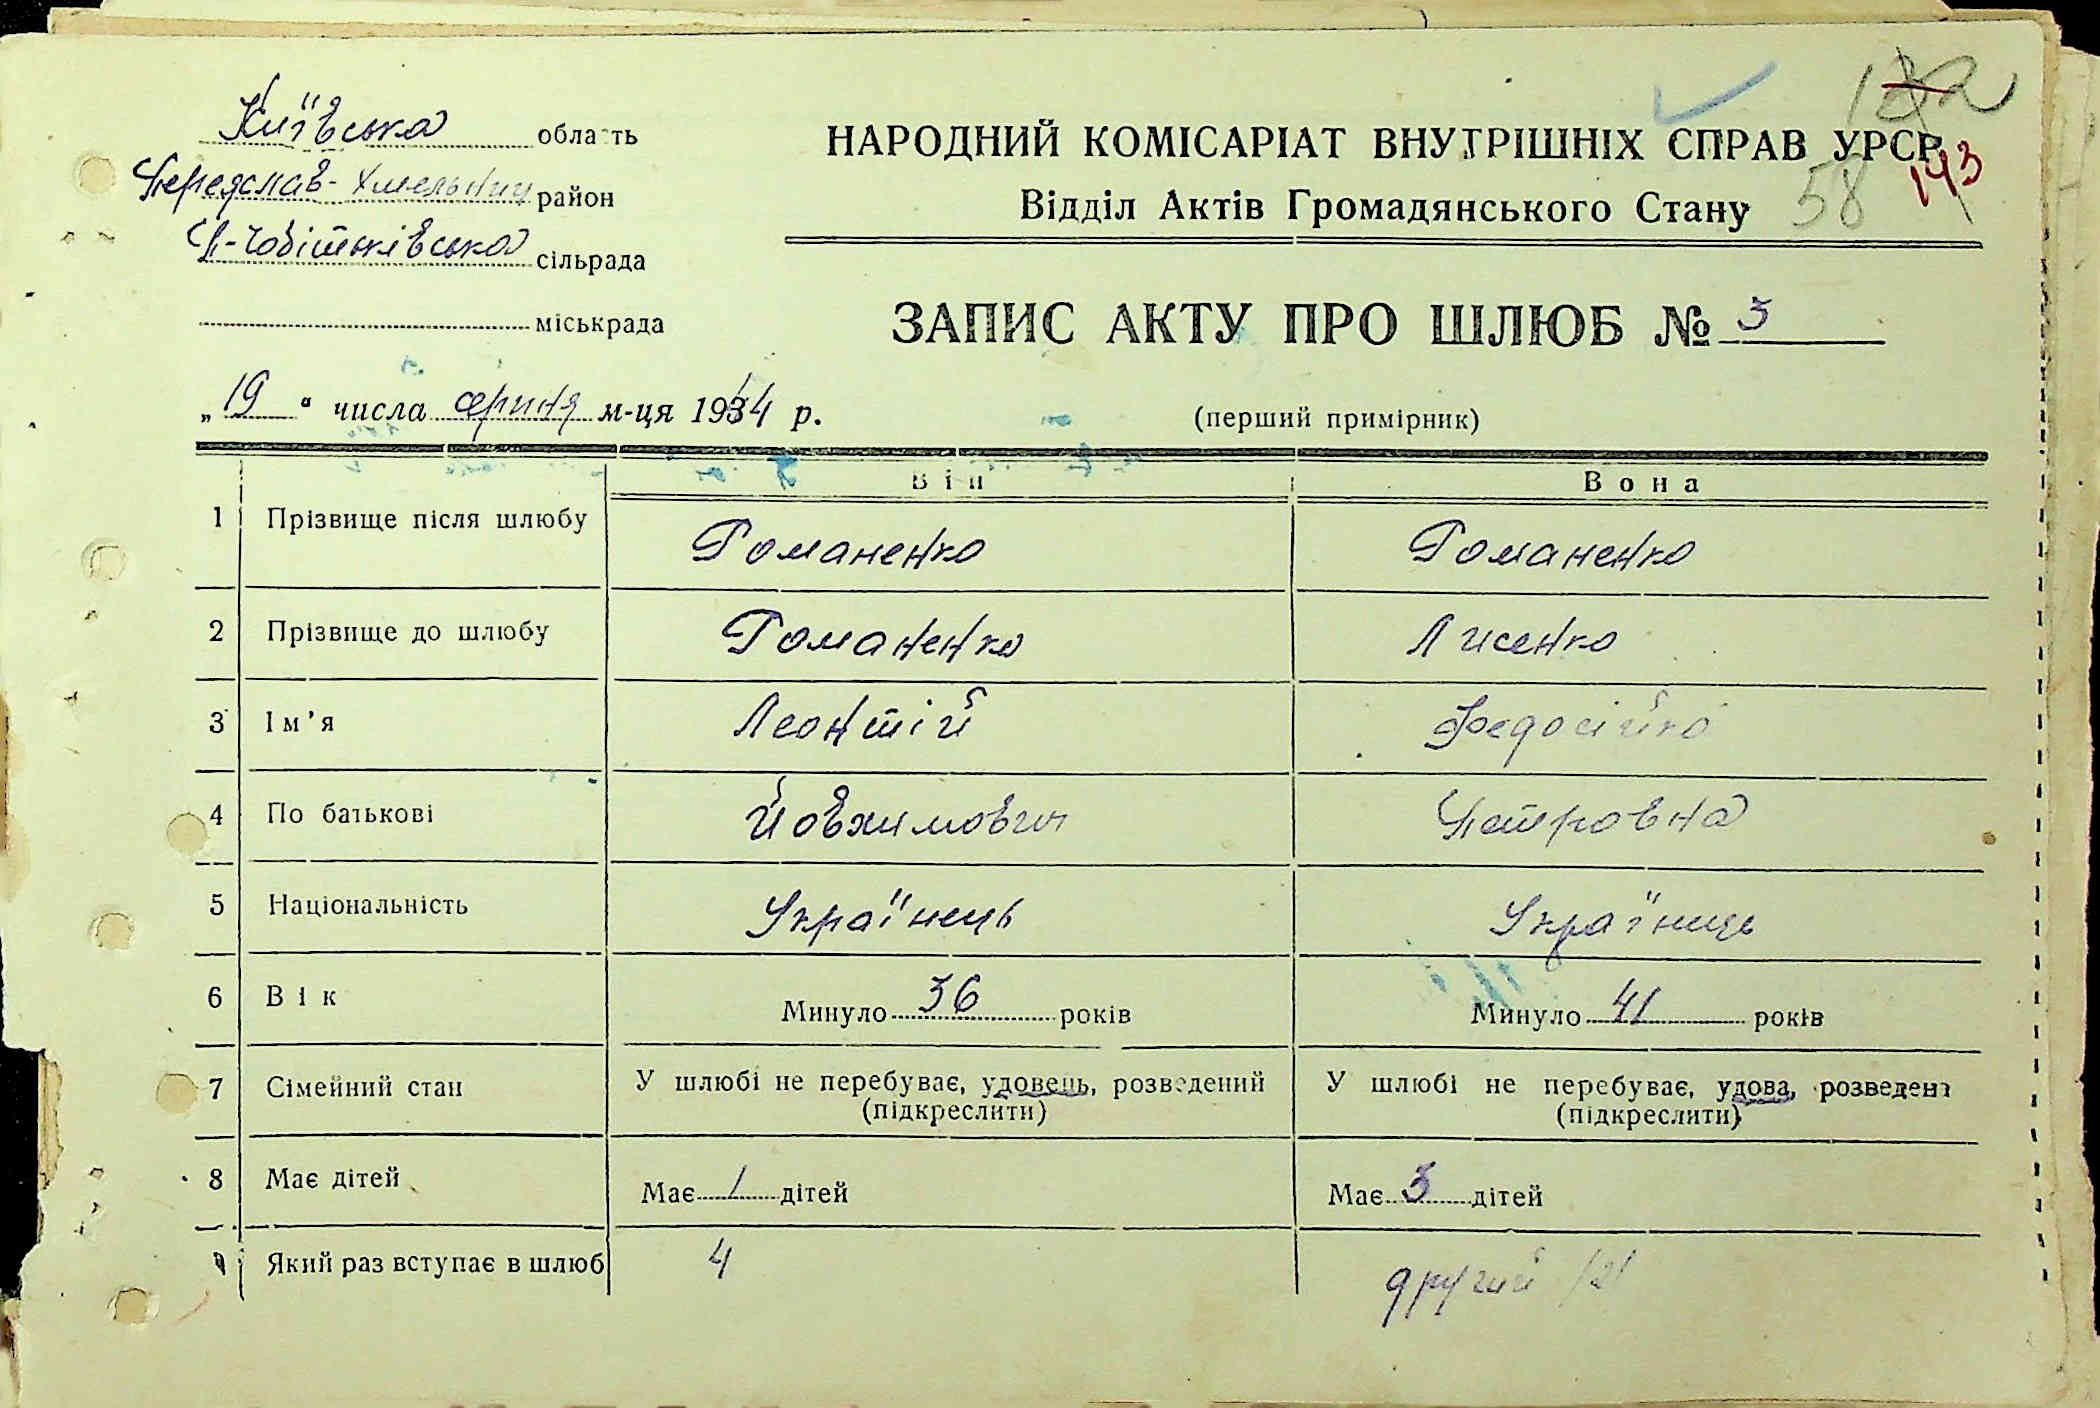 Київська область
Переяслав-Хмельниц район
П-Чобітьківська сільрада
міськрада
НАРОДНИЙ КОМІСАРІАТ ВНУТРІШНІХ СПРАВ УРСР
143
Відділ Актів Громадянського Стану 58
ЗАПИС АКТУ ПРО ШЛЮБ № 3
„19“ числа серпня м-ця 1944 р.
(перший примірник)
Він Вона
1 Прізвище після шлюбу Романенко Романенко
2 Прізвище до шлюбу Романенко Лисенко
3 Ім'я Леонтій Федосійка
4 По батькові Йовхимович Петровна
5 Національність Українець Україниць
6 Вік Минуло 36 років Минуло 41 років
7 Сімейний стан У шлюбі не перебуває, удовець, розведений У шлюбі не перебуває, удова, розведена
(підкреслити) (підкреслити)
8 Має дітей Має 1 дітей Має 3 дітей
9 Який раз вступає в шлюб 4 другий /2/